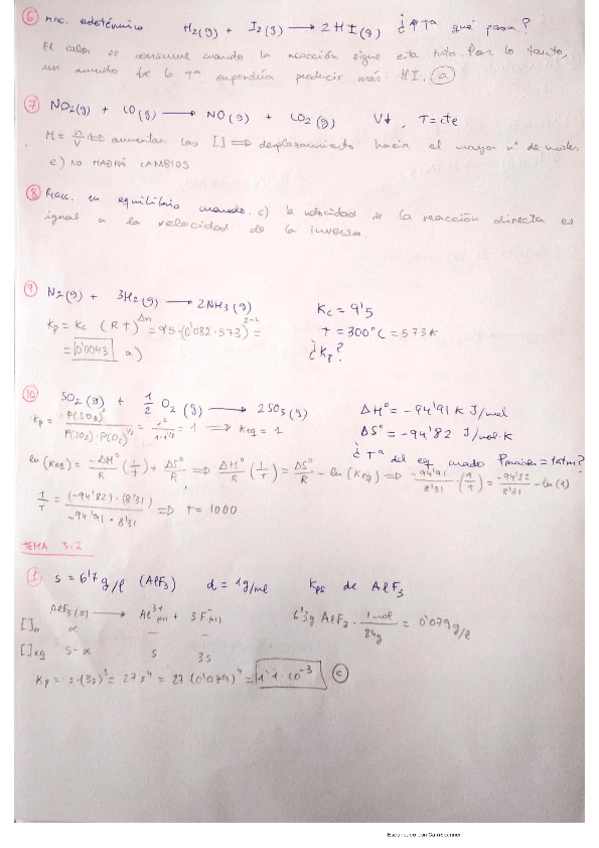 ⑥ reac. endotérmico H₂(g) + I₂(g) ⟶ 2HI(g) ¿↑Tª qué pasa?
El calor se consume cuando la reacción sigue esta ruta. Por lo tanto,
un aumento de la Tª supondría producir más HI. ⓐ
⑦ NO₂(g) + CO(g) ⟶ NO(g) + CO₂(g) V↓, T=cte
M = n/V ⟺ aumentan las [] ⟹ desplazamiento hacia el mayor nº de moles
e) NO HABRÁ CAMBIOS
⑧ Reacc. en equilibrio cuando. c) la velocidad de la reacción directa es
igual a la velocidad de la inversa.
⑨ N₂(g) + 3H₂(g) ⟶ 2NH₃(g) Kc = 9'5
Kp = Kc (RT)^Δn = 9'5·(0'082·573)^2-4 = T = 300°C = 573K
= 0'0043 a) ¿Kp?
⑩ SO₂(g) + 1/2 O₂(g) ⟶ 2SO₃(g) ΔH° = -94'91 KJ/mol
Kp = P(SO₃)²/P(SO₂)·P(O₂)^1/2 = 1²/1·1^1/2 = 1 ⟹ Keq = 1 ΔS° = -94'82 J/mol·K
¿Tª del eq. cuando = 1atm?
ln(Keq) = -ΔH°/R (1/T) + ΔS°/R ⟹ ΔH°/R (1/T) = ΔS°/R - ln(Keq) ⟹ -94'91/8'31 · (1/T) = -94'82/8'31 - ln(1)
1/T = (-94'82)·(8'31)/-94'91·8'31 ⟹ T = 1000
TEMA 3.2
① s = 6'7g/l (AlF₃) d = 1g/ml Kps de AlF₃
AlF₃(s) ⟶ Al³⁺ + 3F⁻ 6'3g AlF₃ · 1mol/84g = 0'079g/l
[]₀ α - -
[]eq s-α s 3s
Kp = s·(3s)³ = 27s⁴ = 27(0'079)⁴ = 1'1·10⁻³ ⓒ
Escaneado con CamScanner